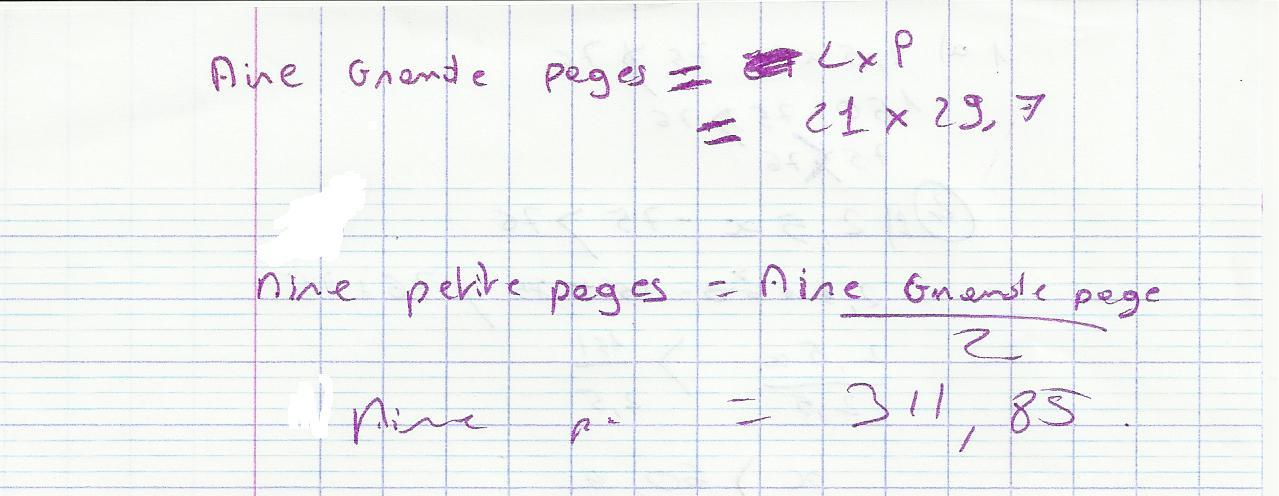 Aire Grande pages = L x P
= 21 x 29,7
Aire petite pages = Aire Grande page
2
Aire p. = 311,85.